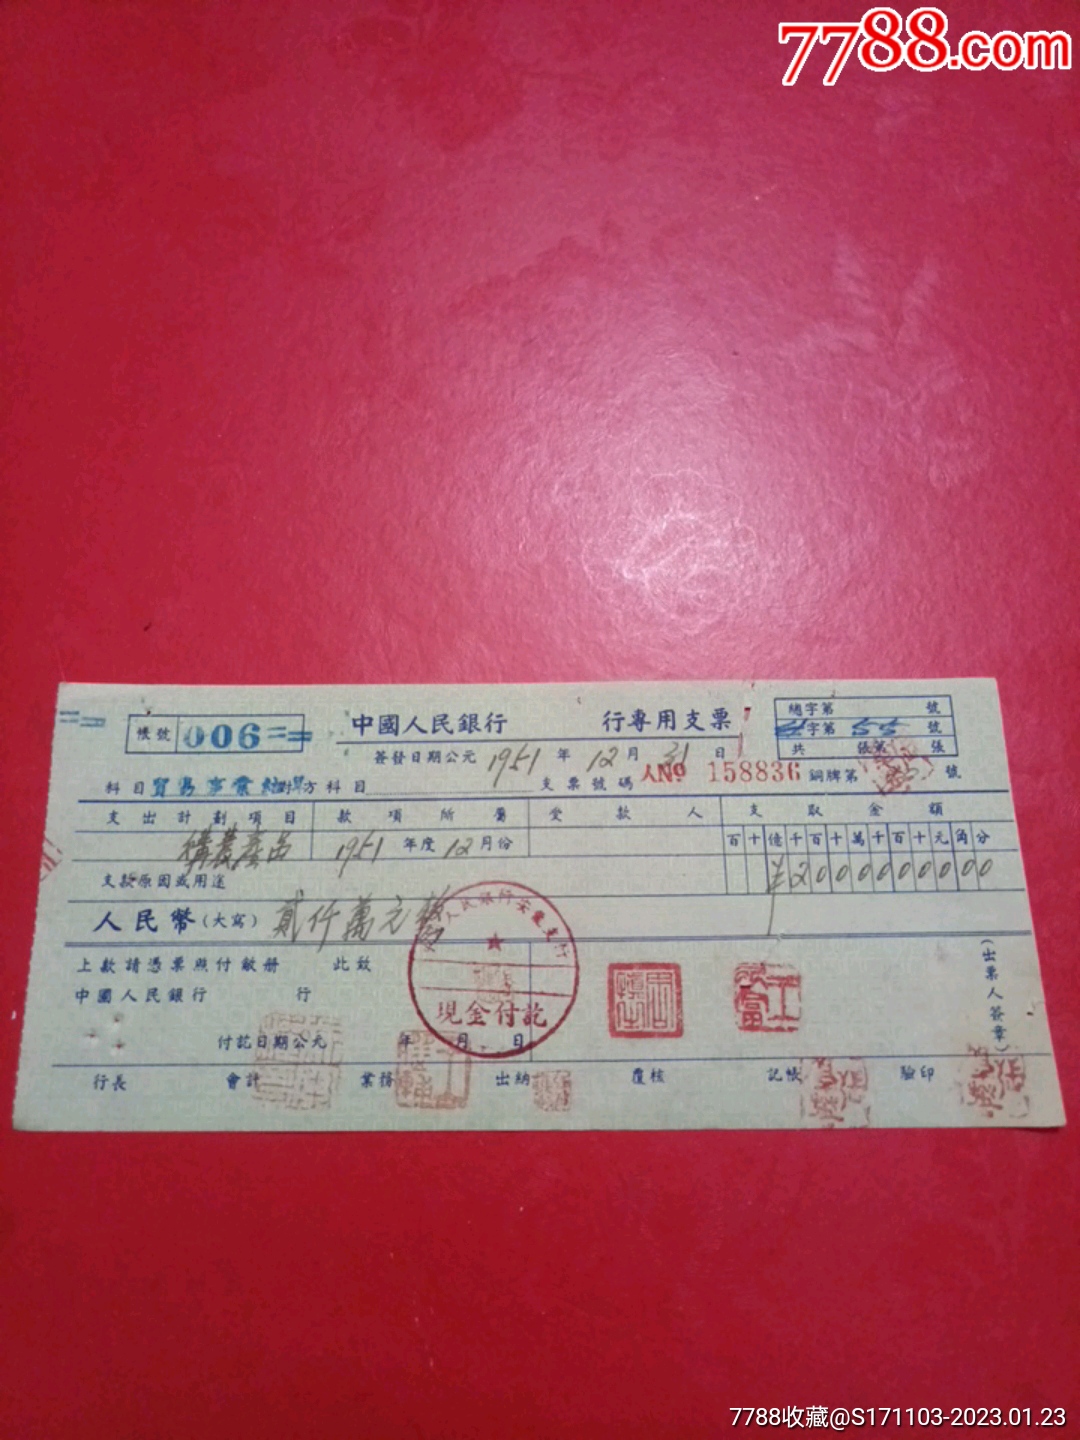 7788.com
帳號 006
中國人民銀行 行專用支票
總字第 號
字第 55 號
共 張第 張
簽發日期公元 1951 年 12 月 31 日
科目 貿易事業 方科目 支票號碼 人№ 158836 銅牌第 號
支出計劃項目 款項所屬 受款人 支取金額
1951 年度 12 月份
百十億千百十萬千百十元角分
支款原因或用途
¥2000000000
人民幣(大寫) 貳仟萬元
上款請憑票照付敝册 此致
中國人民銀行 行
(出票人簽章)
現金付訖
付訖日期公元 年 月 日
行長 會計 業務 出納 覆核 記帳 驗印
7788收藏@S171103-2023.01.23